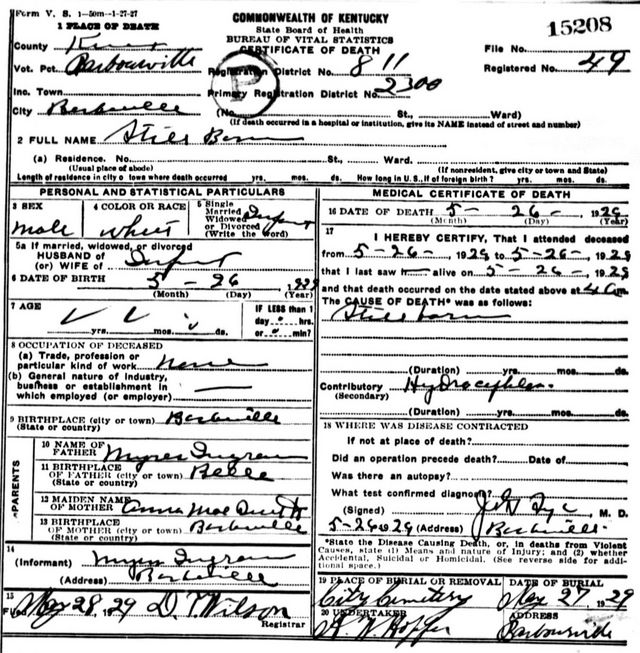 Form V. S. 1-50m-1-27-27
1 PLACE OF DEATH
COMMONWEALTH OF KENTUCKY
State Board of Health
BUREAU OF VITAL STATISTICS
CERTIFICATE OF DEATH
15208
County Knox
File No.
Vot. Pct. Barbourville
Registration District No. 811
Registered No. 49
Inc. Town
Primary Registration District No. 2300
P
City
(No. St., Ward)
(If death occurred in a hospital or institution, give its NAME instead of street and number)
2 FULL NAME Still Born
(a) Residence. No. St., Ward.
(Usual place of abode) (If nonresident, give city or town and State)
Length of residence in city o town where death occurred yrs. mos. ds. How long in U.S., if of foreign birth? yrs. mos. ds.
PERSONAL AND STATISTICAL PARTICULARS
3 SEX male
4 COLOR OR RACE
5 Single
Married
Widowed
or Divorced Infant
(Write the word)
5a If married, widowed, or divorced
HUSBAND of
(or) WIFE of Infant
6 DATE OF BIRTH 5-26
(Month) (Day) (Year)
7 AGE
yrs. mos. ds.
IF LESS than 1
day hrs.
or min?
8 OCCUPATION OF DECEASED
(a) Trade, profession or
particular kind of work none
(b) General nature of industry,
business or establishment in
which employed (or employer)
9 BIRTHPLACE (city or town)
(State or country)
PARENTS
10 NAME OF
FATHER Myres Ingram
11 BIRTHPLACE
OF FATHER (city or town)
(State or country)
12 MAIDEN NAME
OF MOTHER Anna Mae
13 BIRTHPLACE
OF MOTHER (city or town)
(State or country)
14
(Informant) Myres Ingram
(Address)
15
Filed May 28, 1929 D. T. Wilson
Registrar
MEDICAL CERTIFICATE OF DEATH
16 DATE OF DEATH 5-26-, 1929
(Month) (Day) (Year)
17
I HEREBY CERTIFY, That I attended deceased
from 5-26-, 1929 to 5-26-, 1929
that I last saw h alive on 5-26-, 1929
and that death occurred on the date stated above at 4 am
The CAUSE OF DEATH* was as follows:
Still born
(Duration) yrs. mos. ds.
Contributory
(Secondary)
(Duration) yrs. mos. ds.
18 WHERE WAS DISEASE CONTRACTED
If not at place of death?
Did an operation precede death? Date of
Was there an autopsy?
What test confirmed diagnosis?
(Signed) M. D.
5-26 1929 (Address)
*State the Disease Causing Death, or, in deaths from Violent
Causes, state (1) Means and nature of Injury; and (2) whether
Accidental, Suicidal or Homicidal. (See reverse side for addi-
tional space.)
19 PLACE OF BURIAL OR REMOVAL City Cemetery
DATE OF BURIAL May 27 1929
20 UNDERTAKER
ADDRESS Barbourville